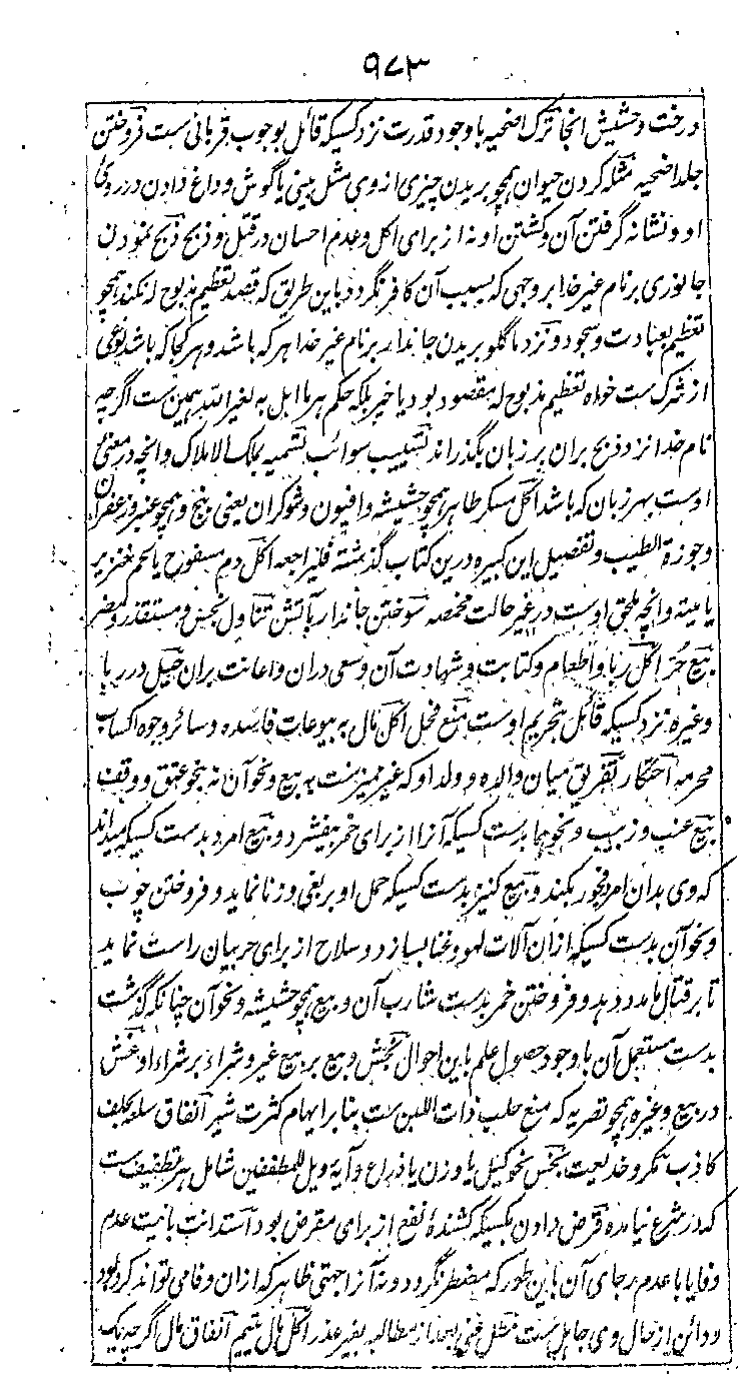 ۹۷۳
درخت و حشیش آنجا ترک اضحیه با وجود قدرت نزد کسیکه قائل بوجوب قربانی ست فروختن
جلد اضحیه مثله کردن حیوان همچو بریدن چیزی از وی مثل بینی یا گوش و داغ دادن در روی
او و نشانه گرفتن آن و کشتن او نه از برای اکل و عدم احسان در قتل و ذبح ذبح نمودن
جانوری بر نام غیر خدا بر وجهی که بسبب آن کافر نگردد باین طریق که قصد تعظیم مذبوح له نکند همچو
تعظیم بعبادت و سجود و نزد ما گلو بریدن جاندار بر نام غیر خدا هر که باشد و هر کجا که باشد نوعی
از شرک ست خواه تعظیم مذبوح له مقصود بود یا خیر بلکه حکم هر ما اهل به لغیر الله همین ست اگرچه
نام خدا نزد ذبح بران بر زبان بگذراند تسییب سوائب تسمیه بملک الاملاک و آنچه در معنی
اوست بهر زبان که باشد اکل مسکر طاهر همچو حشیشه و افیون و شوکران یعنی بنج و همچو عنبر و زعفران
و جوزة الطیب و تفصیل این کبیره درین کتاب گذشته فلیراجعه اکل دم مسفوح یا لحم خنزیر
یا میته و آنچه ملحق اوست در غیر حالت مخمصه سوختن جاندار بآتش تناول نجس و مستقذر و مضر
بیع حر اکل ربا و اطعام و کتابت و شهادت آن و سعی دران و اعانت بران حیل در ربا
و غیره نزد کسیکه قائل بتحریم اوست منع فحل اکل مال به بیوعات فاسده و سائر وجوه اکساب
محرمه احتکار تفریق میان والده و ولد او که غیر ممیز ست به بیع و نحو آن نه بنحو عتق و وقف
بیع عنب و زبیب و نحوها بدست کسیکه آنرا از برای خمر بیفشرد و بیع امرد بدست کسیکه میداند
که وی بدان امرد فجور بکند و بیع کنیز بدست کسیکه حمل او بر بغی و زنا نماید و فروختن چوب
و نحو آن بدست کسیکه ازان آلات لهو و غنا بسازد و سلاح از برای حربیان راست نماید
تا بر قتال ما مدد دهد و فروختن خمر بدست شارب آن و بیع همچو حشیشه و نحو آن چنانکه گذشت
بدست مستعمل آن با وجود حصول علم باین احوال نجش و بیع بر بیع غیر و شراء بر شراء او غش
در بیع و غیره همچو تصریه که منع حلب ذات اللبن ست بنا بر ایهام کثرت شیر انفاق سلعه بحلف
کاذب مکر و خدیعت بخس نحو کیل یا وزن یا ذراع و آیهٔ ویل للمطففین شامل هر تطفیف ست
که در شرع نیامده قرض دادن بکسیکه کشندهٔ نفع از برای مقرض بود استدانت با نیت عدم
وفا یا با عدم رجای آن باین طور که مضطر نگردد و نه آنرا جهتی ظاهر که ازان وفا می تواند کرد بود
و دائن از حال وی جاهل ست مطل غنی بعد از مطالبه بغیر عذر اکل مال یتیم انفاق مال اگرچه یک